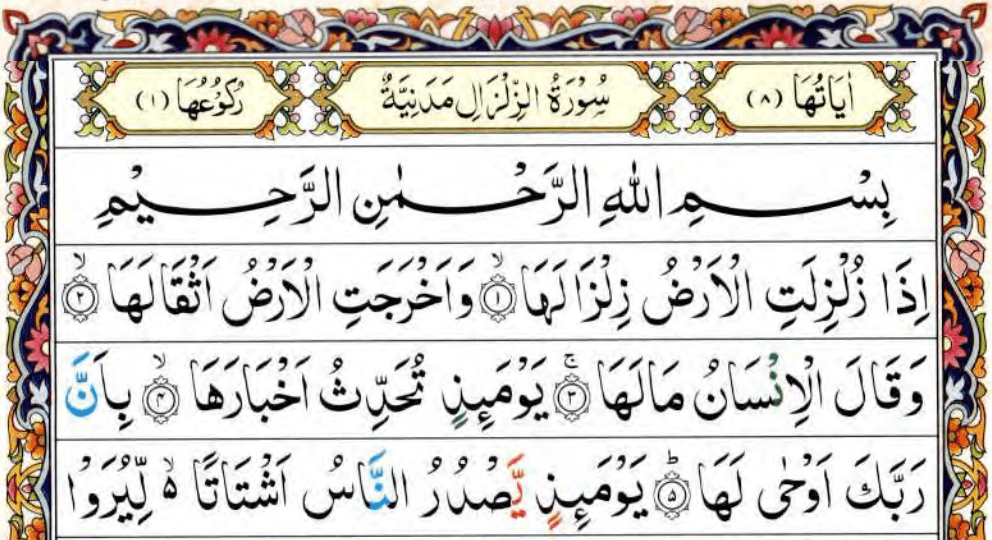 اٰيَاتُهَا (٨) سُوْرَةُ الزِّلْزَالِ مَدَنِيَّةٌ رُكُوْعُهَا (١)
بِسْمِ اللّٰهِ الرَّحْمٰنِ الرَّحِيْمِ
اِذَا زُلْزِلَتِ الْاَرْضُ زِلْزَالَهَا ۙ﴿١﴾ وَاَخْرَجَتِ الْاَرْضُ اَثْقَالَهَا ۙ﴿٢﴾
وَقَالَ الْاِنْسَانُ مَالَهَا ۚ﴿٣﴾ يَوْمَئِذٍ تُحَدِّثُ اَخْبَارَهَا ۙ﴿٤﴾ بِاَنَّ
رَبَّكَ اَوْحٰى لَهَا ؕ﴿٥﴾ يَوْمَئِذٍ يَّصْدُرُ النَّاسُ اَشْتَاتًا ۙ۬ لِّيُرَوْا